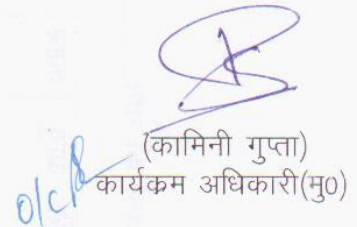 (कामिनी गुप्ता)
कार्यक्रम अधिकारी(मु०)